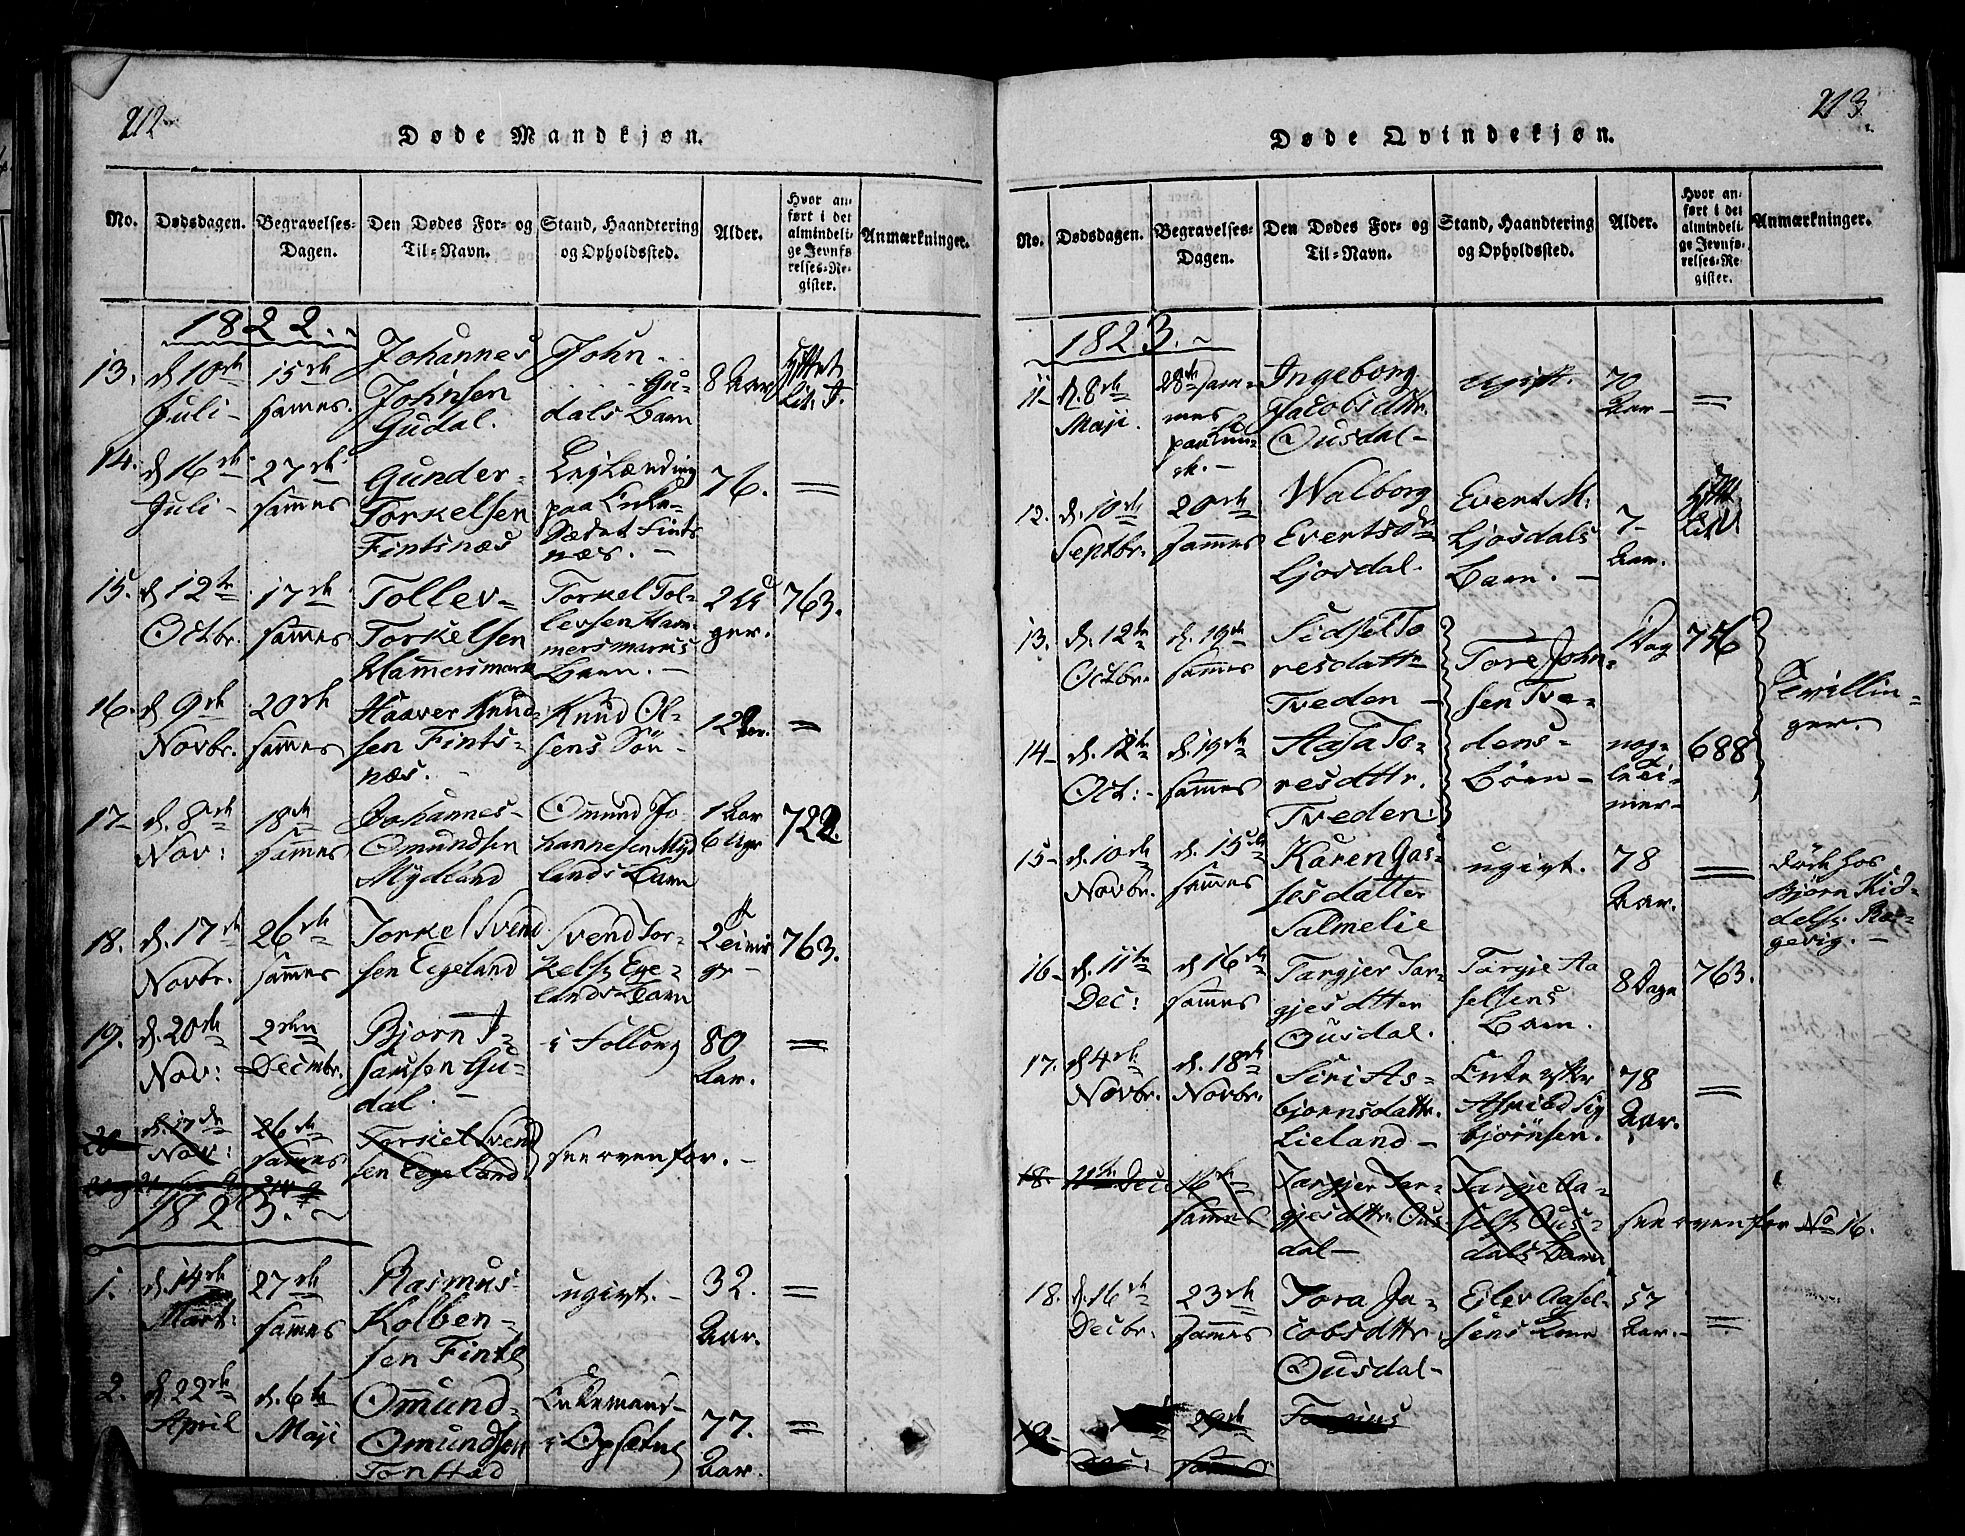 212
Døde Mandkjøn.
No.
Dødsdagen.
Begravelses-
Dagen.
Den Dødes For- og
Til-Navn.
Stand, Haandtering
og Opholdssted.
Alder.
Hvor an-
ført i det
almindeli-
ge Jevnfø-
relses-Re-
gister.
Anmærkninger.
1822.
13.
d. 10de
Juli -
15de
sammes.
Johannes
Johnsen
Gudal.
John
Gu-
dals Barn
8 Aar
Lit. J.
14.
d. 16de
Juli -
27de
sammes
Gunder
Torkelsen
Fintsnæs
paa Enke-
Sædet Fints
næs. -
76.
=
15.
d. 12te
Octbr.
17de
sammes
Tollev
Torkelsen
Hamersmark
Torkel Tol-
levsen Ham-
mersmarks
Barn. -
2 U
ger.
763.
16.
d. 9de
Novbr.
20de
sammes
Haaver Knud-
sen Fints-
næs.
Knud Ol-
sens Søn -
12 Aar.
=
17-
d. 8de
Nov:
18de
sammes
Johannes
Omundsen
Mydland
Omund Jo-
hannesen Myd
lands Barn
1 Aar
6 Uger
722.
18.
d. 17de
Novbr.
26de
sammes
Torkel Svend
sen Egeland
Svend Tor-
kels. Ege-
lands Barn
763.
19.
d. 20de
Nov:
2den
Decmbr.
Bjorn I-
sacsen Gu-
dal. -
i Folloug
80
Aar.
=
20
d. 17de
Nov:
26de
sammes
Torkel Svend
sen Egeland
see ovenfor. -
1823.
1.
d. 14de
Mart:
27de
sammes
Rasmus
Kolben-
sen Fintl
ugivt. -
32.
Aar.
=
2.
d. 22de
April
d. 6te
Maji
Omund
Omundsen
Tonstad
Enkemand
i Opsætnl
77.
Aar.
=
213.
Døde Qvindekjøn.
No.
Dødsdagen.
Begravelses-
Dagen.
Den Dødes For- og
Til-Navn.
Stand, Haandtering
og Opholdssted.
Alder.
Hvor an-
ført i det
almindeli-
ge Jevnfø-
relses-Re-
gister.
Anmærkninger.
1823.
11-
d. 8de
Maji.
28de sam-
mes
Ingeborg
Jacobsdttr.
Ousdal-
ugift.
70
Aar-
=
12.
d. 10de
Septbr.
20de
sammes
Walborg
Evertsd
Ljosdal.
Evert M:
Ljosdals
Barn. -
7-
Aar.
13.
d. 12te
Octbr.
d. 19de
sammes
Sidsel To
resdatt
Tveden -
Tore John-
sen Tve-
dens
Børn -
1 Dag
756
Tvillin-
ger.
14-
d. 12te
Oct: -
d. 19de
sammes
Aasa To-
resdttr.
Tveden:
nog-
le Ti-
mer-
688
15-
d. 10de
Novbr.
d. 15de
sammes
Karen Gas-
sesdatter
Salmelie
ugivt.
78
Aar.
=
Døde hos
Bjørn Kid-
dels.
16-
d. 11te
Dec:
d 16de
sammes
Targjer Tar-
gjesdtter
Ousdal.
Targje Aa
selsens
Barn.
8 Dage
763.
17.
d. 4de
Novbr.
d. 18de
Novbr.
Siri As-
bjornsdattr.
Lieland -
Enke efter
bjørnsen.
78
Aar.
=
18.
11te Dec:
16de
sammes
Targjer Tar-
gjesdttr. Ous-
dal-
Targje Aa-
sels. Ous-
dals Barn
see ovenfor No 16.
18.
d. 16de
Decbr.
23de
sammes
Tora Ja-
cobsdttr.
Ousdal-
Eilev Aasel-
sens Kone
57
Aar. -
=
19-
Dec:
29de
sammes